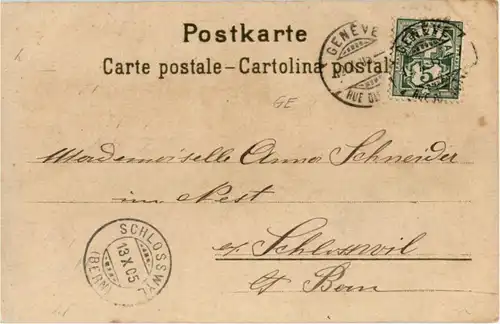 Postkarte
Carte postale-Cartolina postal
GENÈVE
RUE DU
GENÈVE
5
GE
Mademoiselle Anna Schneider
im Nest
Schlosswil
Ct Bern
SCHLOSSWYL
13 X 05
(BERN)